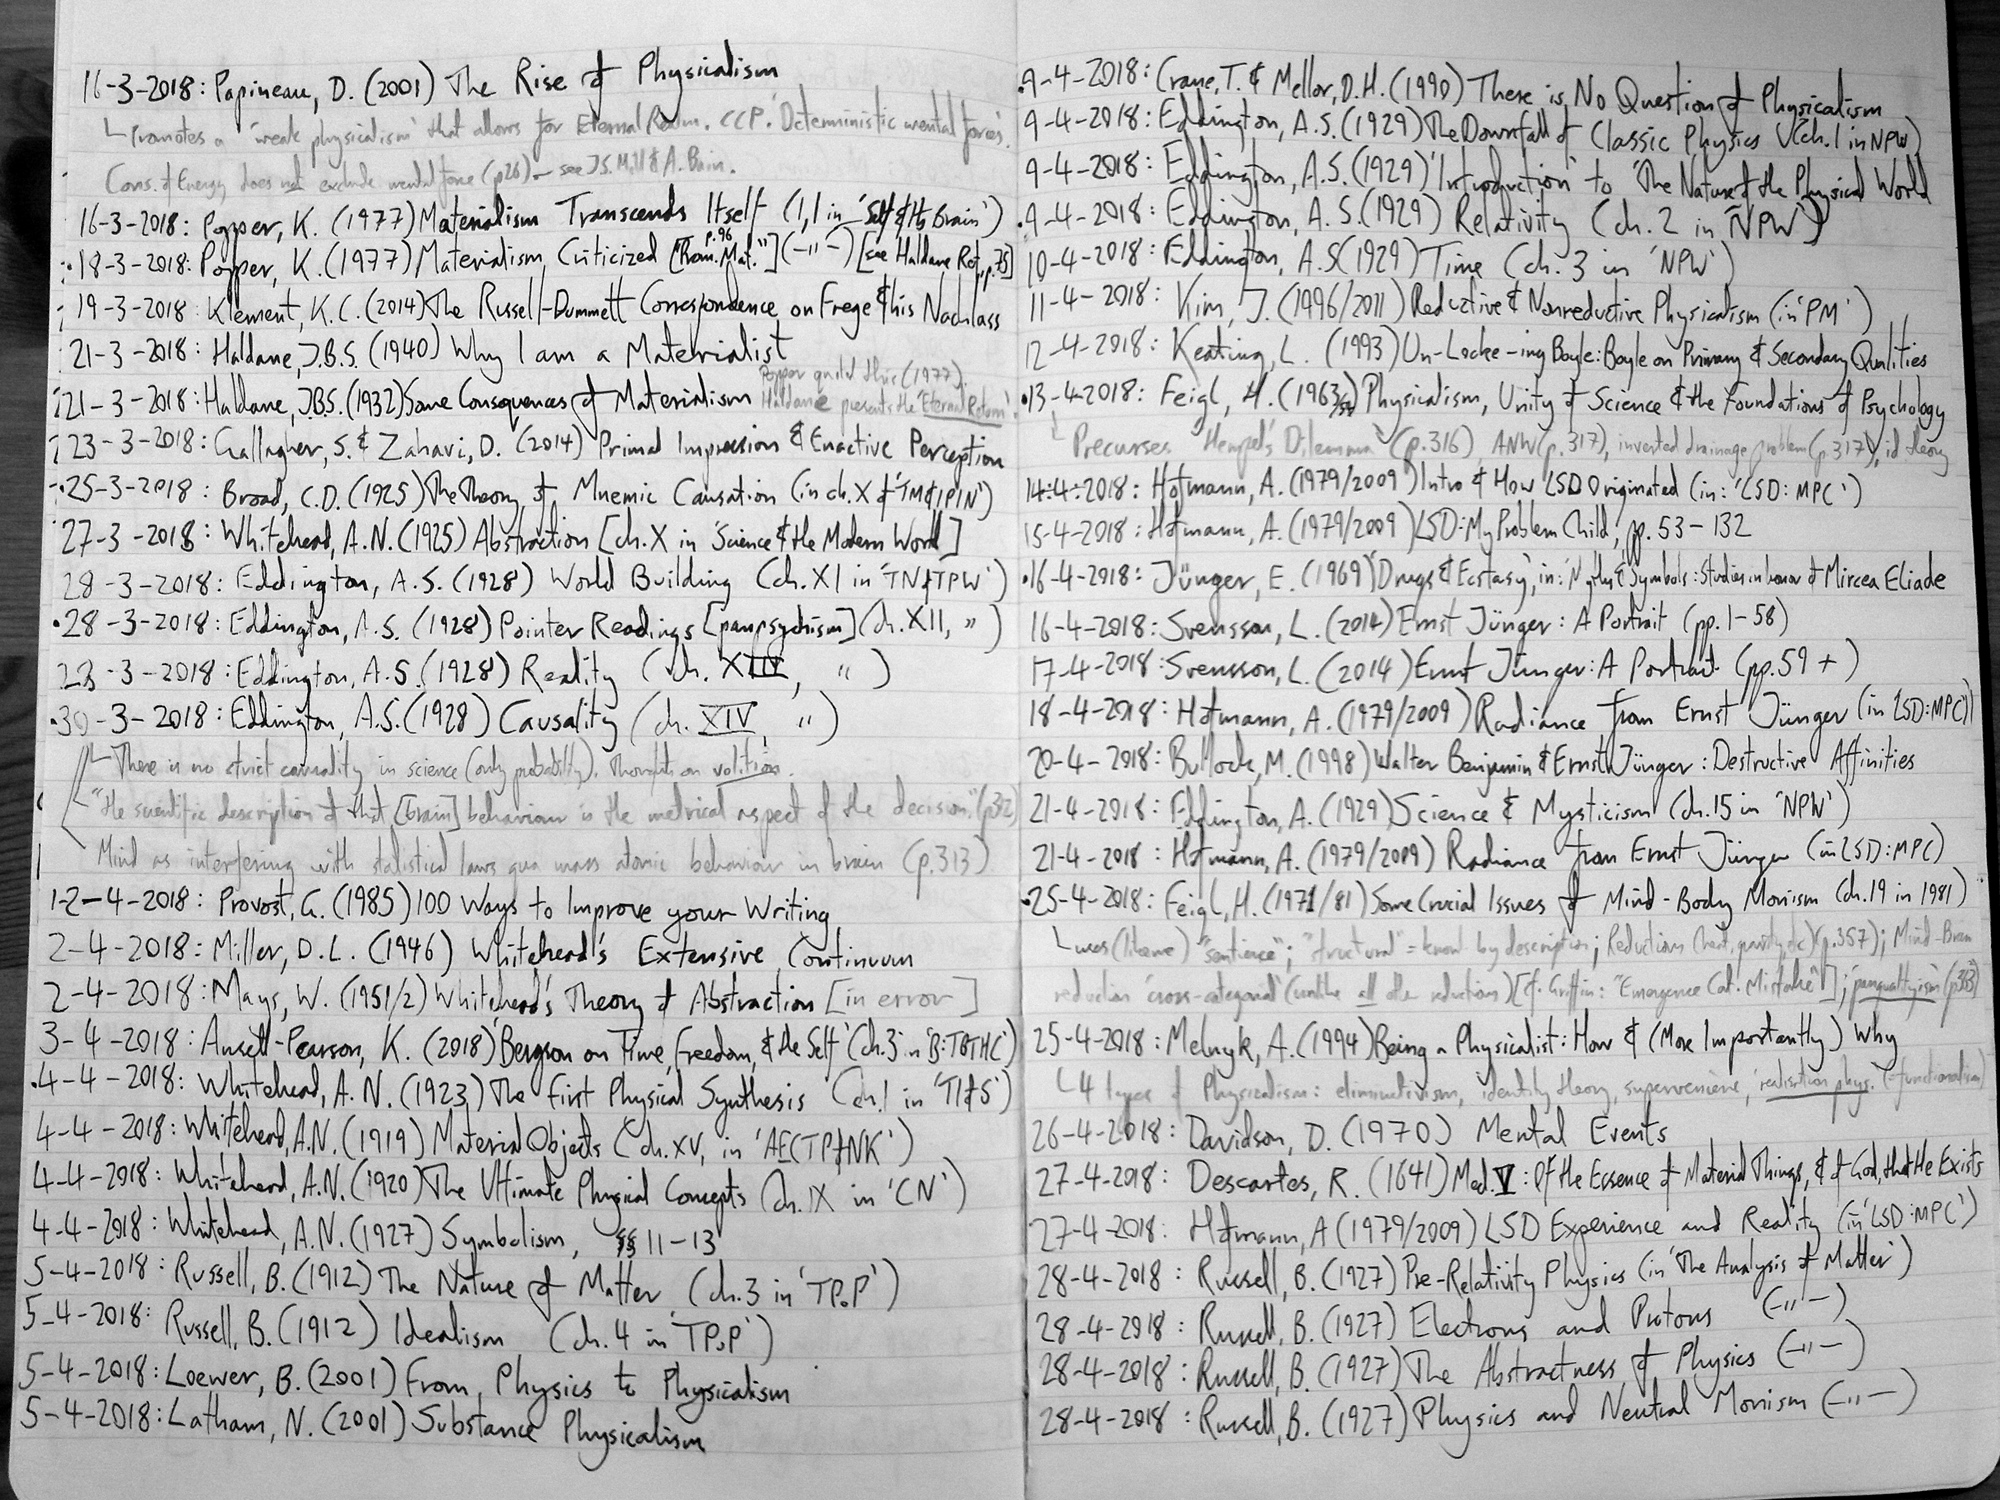 16-3-2018: Papineau, D. (2001) The Rise of Physicalism
Promotes a 'weak physicalism' that allows for Eternal Realm. CCP. 'Deterministic mental forces'.
Cons. of Energy does not exclude mental force (p26) – see J.S. Mill & A. Bain.
16-3-2018: Popper, K. (1977) Materialism Transcends Itself (1,1 in 'Self & Its Brain')
18-3-2018: Popper, K. (1977) Materialism Criticized [Prom. Mat." p.96] (-"-) [see Haldane Ref, p.75]
19-3-2018: Klement, K.C. (2014) The Russell-Dummett Correspondence on Frege & his Nachlass
21-3-2018: Haldane, J.B.S. (1940) Why I am a Materialist
Popper quoted this (1977).
21-3-2018: Haldane, J.B.S. (1932) Some Consequences of Materialism Haldane presents the 'Eternal Return'.
23-3-2018: Gallagher, S. & Zahavi, D. (2014) Primal Impression & Enactive Perception
25-3-2018: Broad, C.D. (1925) The Theory of Mnemic Causation (in ch. X of 'TM&IPIN')
27-3-2018: Whitehead, A.N. (1925) Abstraction [ch. X in 'Science & the Modern World']
28-3-2018: Eddington, A.S. (1928) World Building (ch. XI in 'TNofTPW')
28-3-2018: Eddington, A.S. (1928) Pointer Readings [panpsychism] (ch. XII, ")
28-3-2018: Eddington, A.S. (1928) Reality (ch. XIII, ")
30-3-2018: Eddington, A.S. (1928) Causality (ch. XIV, ")
There is no strict causality in science (only probability). Thoughts on volition.
"the scientific description of that [brain] behaviour is the metrical aspect of the decision." (p312)
Mind as interfering with statistical laws qua mass atomic behaviour in brain (p.313)
1-2-4-2018: Provost, G. (1985) 100 Ways to Improve your Writing
2-4-2018: Miller, D.L. (1946) Whitehead's Extensive Continuum
2-4-2018: Mays, W. (1951/2) Whitehead's Theory of Abstraction [in error]
3-4-2018: Ansell-Pearson, K. (2018) 'Bergson on Time, Freedom, & the Self' (ch.3 in 'B:TBTHC')
4-4-2018: Whitehead, A.N. (1923) The First Physical Synthesis (ch.1 in 'TIofS')
4-4-2018: Whitehead, A.N. (1919) Material Objects (ch. XV, in 'AECTPofNK')
4-4-2018: Whitehead, A.N. (1920) The Ultimate Physical Concepts (ch. IX in 'CN')
4-4-2018: Whitehead, A.N. (1927) Symbolism, §§ 11-13
5-4-2018: Russell, B. (1912) The Nature of Matter (ch.3 in 'TPoP')
5-4-2018: Russell, B. (1912) Idealism (ch.4 in 'TPoP')
5-4-2018: Loewer, B. (2001) From Physics to Physicalism
5-4-2018: Latham, N. (2001) Substance Physicalism
9-4-2018: Crane, T. & Mellor, D.H. (1990) There is No Question of Physicalism
9-4-2018: Eddington, A.S. (1929) The Downfall of Classic Physics (ch.1 in NPW)
9-4-2018: Eddington, A.S. (1929) 'Introduction' to 'The Nature of the Physical World
9-4-2018: Eddington, A.S. (1929) Relativity (ch.2 in 'NPW')
10-4-2018: Eddington, A.S (1929) Time (ch.3 in 'NPW')
11-4-2018: Kim, J. (1996/2011) Reductive & Nonreductive Physicalism (in 'PM')
12-4-2018: Keating, L. (1993) Un-Locke-ing Boyle: Boyle on Primary & Secondary Qualities
13-4-2018: Feigl, H. (1963) Physicalism, Unity of Science & the Foundations of Psychology
Precurses 'Hempel's Dilemma' (p.316), ANW (p.317), inverted drainage problem (p.317), id theory
14-4-2018: Hofmann, A. (1979/2009) Intro & How LSD Originated (in: 'LSD: MPC')
15-4-2018: Hofmann, A. (1979/2009) LSD: My Problem Child, pp. 53-132
16-4-2018: Jünger, E. (1969) 'Drugs & Ecstasy', in: 'Myths & Symbols: Studies in honor of Mircea Eliade
16-4-2018: Svensson, L. (2014) Ernst Jünger: A Portrait (pp.1-58)
17-4-2018: Svensson, L. (2014) Ernst Jünger: A Portrait (pp.59+)
18-4-2018: Hofmann, A. (1979/2009) Radiance from Ernst Jünger (in 'LSD: MPC')
20-4-2018: Bullock, M. (1998) Walter Benjamin & Ernst Jünger: Destructive Affinities
21-4-2018: Eddington, A. (1929) Science & Mysticism (ch.15 in 'NPW')
21-4-2018: Hofmann, A. (1979/2009) Radiance from Ernst Jünger (in LSD: MPC)
25-4-2018: Feigl, H. (1971/81) Some Crucial Issues of Mind-Body Monism (ch.19 in 1981)
uses "sentience"; "structural" = know by description; Reductions (heat, gravity, etc) (p.357); Mind-Brain
reduction 'cross-categorial' (unlike all other reductions) [cf. Griffin: "Emergence Cat. Mistake"]; 'panqualityism'
25-4-2018: Melnyk, A. (1994) Being a Physicalist: How & (More Importantly) Why
4 types of Physicalism: eliminativism, identity theory, supervenience, 'realisation phys.' (=functionalism)
26-4-2018: Davidson, D. (1970) Mental Events
27-4-2018: Descartes, R. (1641) Med. V: Of the Essence of Material Things, & of God, that He Exists
27-4-2018: Hofmann, A (1979/2009) LSD Experience and Reality (in 'LSD: MPC')
28-4-2018: Russell, B. (1927) Pre-Relativity Physics (in 'The Analysis of Matter')
28-4-2018: Russell, B. (1927) Electrons and Protons (-"-)
28-4-2018: Russell, B. (1927) The Abstractness of Physics (-"-)
28-4-2018: Russell, B. (1927) Physics and Neutral Monism (-"-)